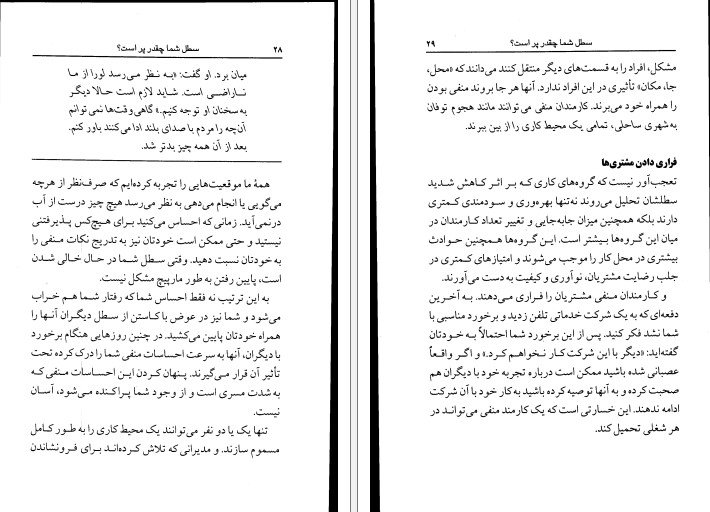 ۲۸ سطل شما چقدر پر است؟
میان برد. او گفت: «به نظر می‌رسد لورا از ما
ناراضی است. شاید لازم است حالا دیگر
به سخنان او توجه کنیم.» گاهی وقت‌ها نمی‌توانم
آن‌چه را مردم با صدای بلند ادا می‌کنند باور کنم.
بعد از آن همه چیز بدتر شد.
همهٔ ما موقعیت‌هایی را تجربه کرده‌ایم که صرف‌نظر از هرچه
می‌گویی یا انجام می‌دهی به نظر می‌رسد هیچ چیز درست از آب
درنمی‌آید. زمانی که احساس می‌کنید برای هیچ‌کس پذیرفتنی
نیستید و حتی ممکن است خودتان نیز به تدریج نکات منفی را
به خودتان نسبت دهید. وقتی سطل شما در حال خالی شدن
است، پایین رفتن به طور مارپیچ مشکل نیست.
به این ترتیب نه فقط احساس شما که رفتار شما هم خراب
می‌شود و شما نیز در عوض با کاستن از سطل دیگران آنها را
همراه خودتان پایین می‌کشید. در چنین روزهایی هنگام برخورد
با دیگران، آنها به سرعت احساسات منفی شما را درک کرده تحت
تأثیر آن قرار می‌گیرند. پنهان کردن این احساسات منفی که
به شدت مسری است و از وجود شما پراکنده می‌شود، آسان
نیست.
تنها یک یا دو نفر می‌توانند یک محیط کاری را به طور کامل
مسموم سازند. و مدیرانی که تلاش کرده‌اند برای فرونشاندن
سطل شما چقدر پر است؟ ۲۹
مشکل، افراد را به قسمت‌های دیگر منتقل کنند می‌دانند که «محل،
جا، مکان» تأثیری در این افراد ندارد. آنها هر جا بروند منفی بودن
را همراه خود می‌برند. کارمندان منفی می‌توانند مانند هجوم توفان
به شهری ساحلی، تمامی یک محیط کاری را از بین ببرند.
فراری دادن مشتری‌ها
تعجب‌آور نیست که گروه‌های کاری که بر اثر کاهش شدید
سطلشان تحلیل می‌روند نه‌تنها بهره‌وری و سودمندی کمتری
دارند بلکه همچنین میزان جابه‌جایی و تغییر تعداد کارمندان در
میان این گروه‌ها بیشتر است. این گروه‌ها همچنین حوادث
بیشتری در محل کار را موجب می‌شوند و امتیازهای کمتری در
جلب رضایت مشتریان، نوآوری و کیفیت به دست می‌آورند.
و کارمندان منفی مشتریان را فراری می‌دهند. به آخرین
دفعه‌ای که به یک شرکت خدماتی تلفن زدید و برخورد مناسبی با
شما نشد فکر کنید. پس از این برخورد شما احتمالاً به خودتان
گفته‌اید: «دیگر با این شرکت کار نخواهم کرد.» و اگر واقعاً
عصبانی شده باشید ممکن است درباره تجربه خود با دیگران هم
صحبت کرده و به آنها توصیه کرده باشید به کار خود با آن شرکت
ادامه ندهند. این خسارتی است که یک کارمند منفی می‌تواند در
هر شغلی تحمیل کند.